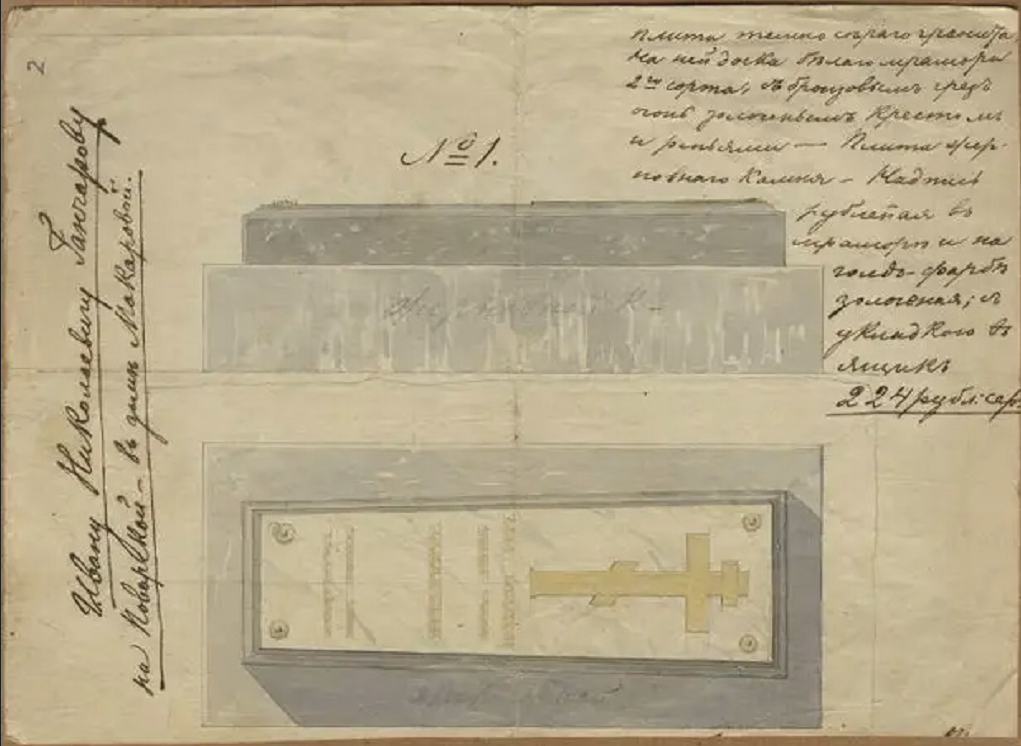 2
Ивану Николаевичу Ганчарову
на Поварской – въ домѣ Макаровой.
№ 1.
Плита темно сѣраго гранита,
На ней доска бѣлаго мрамора
2го сорта, съ бронзовымъ чрезъ
огонь золоченымъ Крестомъ
и репьями — Плита жер-
новнаго Камня – Надпись
рубленая въ
мраморѣ и на
гольд-фарбѣ
золоченая; съ
укладкою въ
ящикъ
224 рубл: сер.
Жерновной К